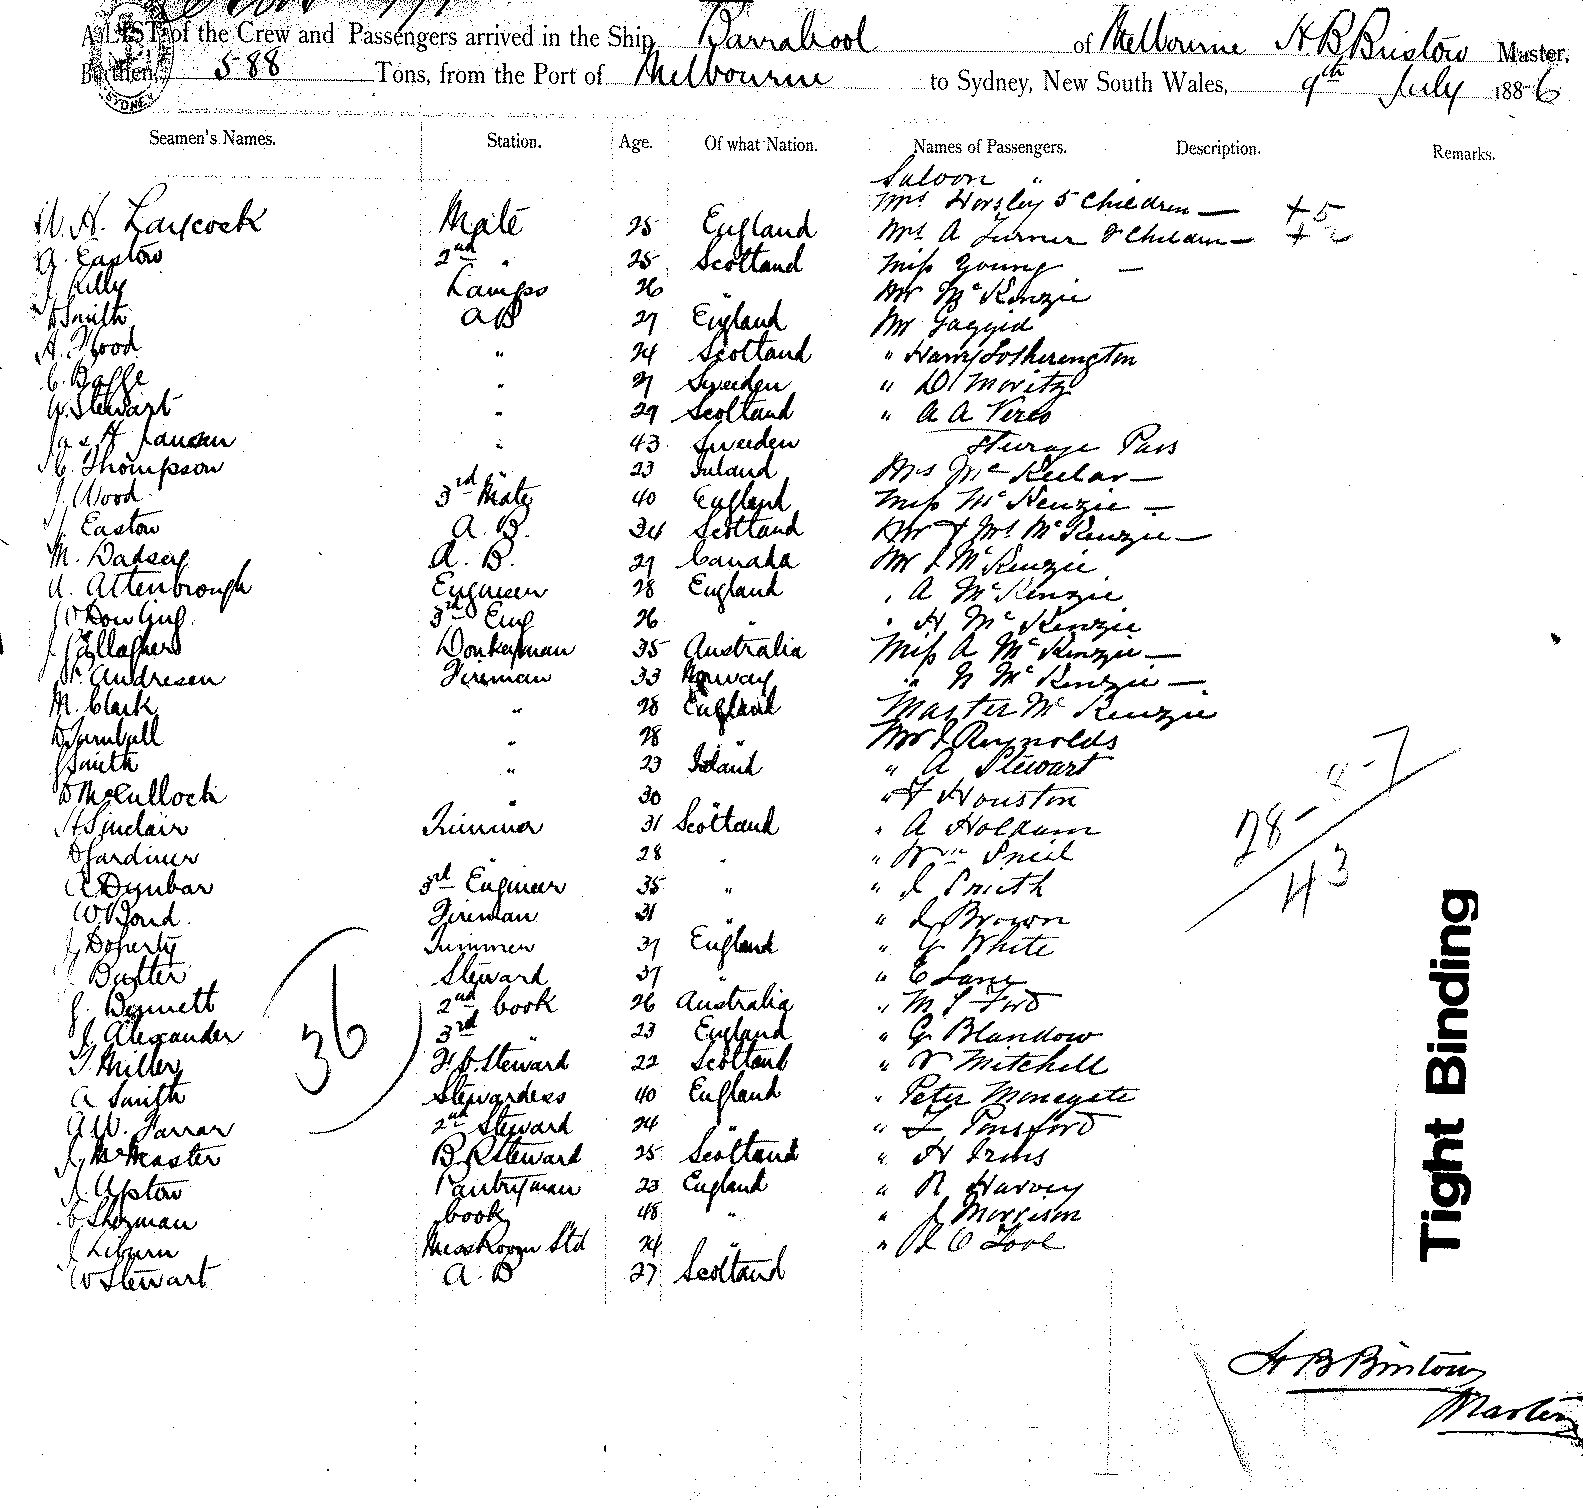 A LIST of the Crew and Passengers arrived in the Ship Barrabool of Melbourne H B Bristow Master,
Burthen, 588 Tons, from the Port of Melbourne to Sydney, New South Wales, 9th July 1886
Seamen's Names. Station. Age. Of what Nation. Names of Passengers. Description. Remarks.
Saloon "
W. H. Laycock Mate 25 England Mrs Horsley 5 Children — +5
G. Easton 2nd " 25 Scotland Mrs A Turner & Children — +
J Killy Lamps 26 " Miss Young —
D Smith AB 27 England Mr McKenzie
A. Wood " 24 Scotland Mr
" Sweden " Harry Fotherington
W. Stewart " 29 Scotland " D. Moritz
" 43 Sweden " A A Veres
C. Thompson " 23 Ireland Steerage Pass
J. Wood 3rd Mate 40 England Mrs McKellar —
J. Easton A. B. 34 Scotland Miss McKenzie —
M. Dadsey A. B. 29 Canada Mr & Mrs McKenzie —
A. Attenbrough Engineer 28 England Mr J McKenzie
J Dowling 3rd Eng 26 " " A McKenzie
J. Gallagher Donkeyman 35 Australia " H McKenzie
Andresen Fireman 33 Norway Miss A McKenzie —
M. Clark " 28 England " N McKenzie —
D Turnbull " 28 " Master McKenzie
J Smith " 23 Ireland Mr J Reynolds
D McCullock " 30 " A Stewart
H Sinclair Trimmer 31 Scotland " F Houston
D Gardiner 28 " " A Holdum
R Dunbar 3rd Engineer 35 " " Wm Sneil
W. Bond. Fireman 31 " " J Smith
J Doherty Trimmer 37 England " J Brown
J Butter Steward 37 " " G White
J. Bennett 2nd Cook 26 Australia " E Lane
J. Alexander 3rd " 23 England " M J Ford
T Miller F. C. Steward 22 Scotland " G Blandow
A Smith Stewardess 40 England " W Mitchell
A W. Farrar 2nd Steward 24 " " Peter Monegate
J McMaster B. R Steward 25 Scotland " F Ponsford
J. Upton Pantryman 23 England " H Irvis
C Shorman Cook 48 " " R Harvey
J Liburn Messroom Std 24 " " J Morrison
W Stewart A. B 27 Scotland " J O Toole
36
28 - 8 - 7
43
Tight Binding
H B Bristow
Master